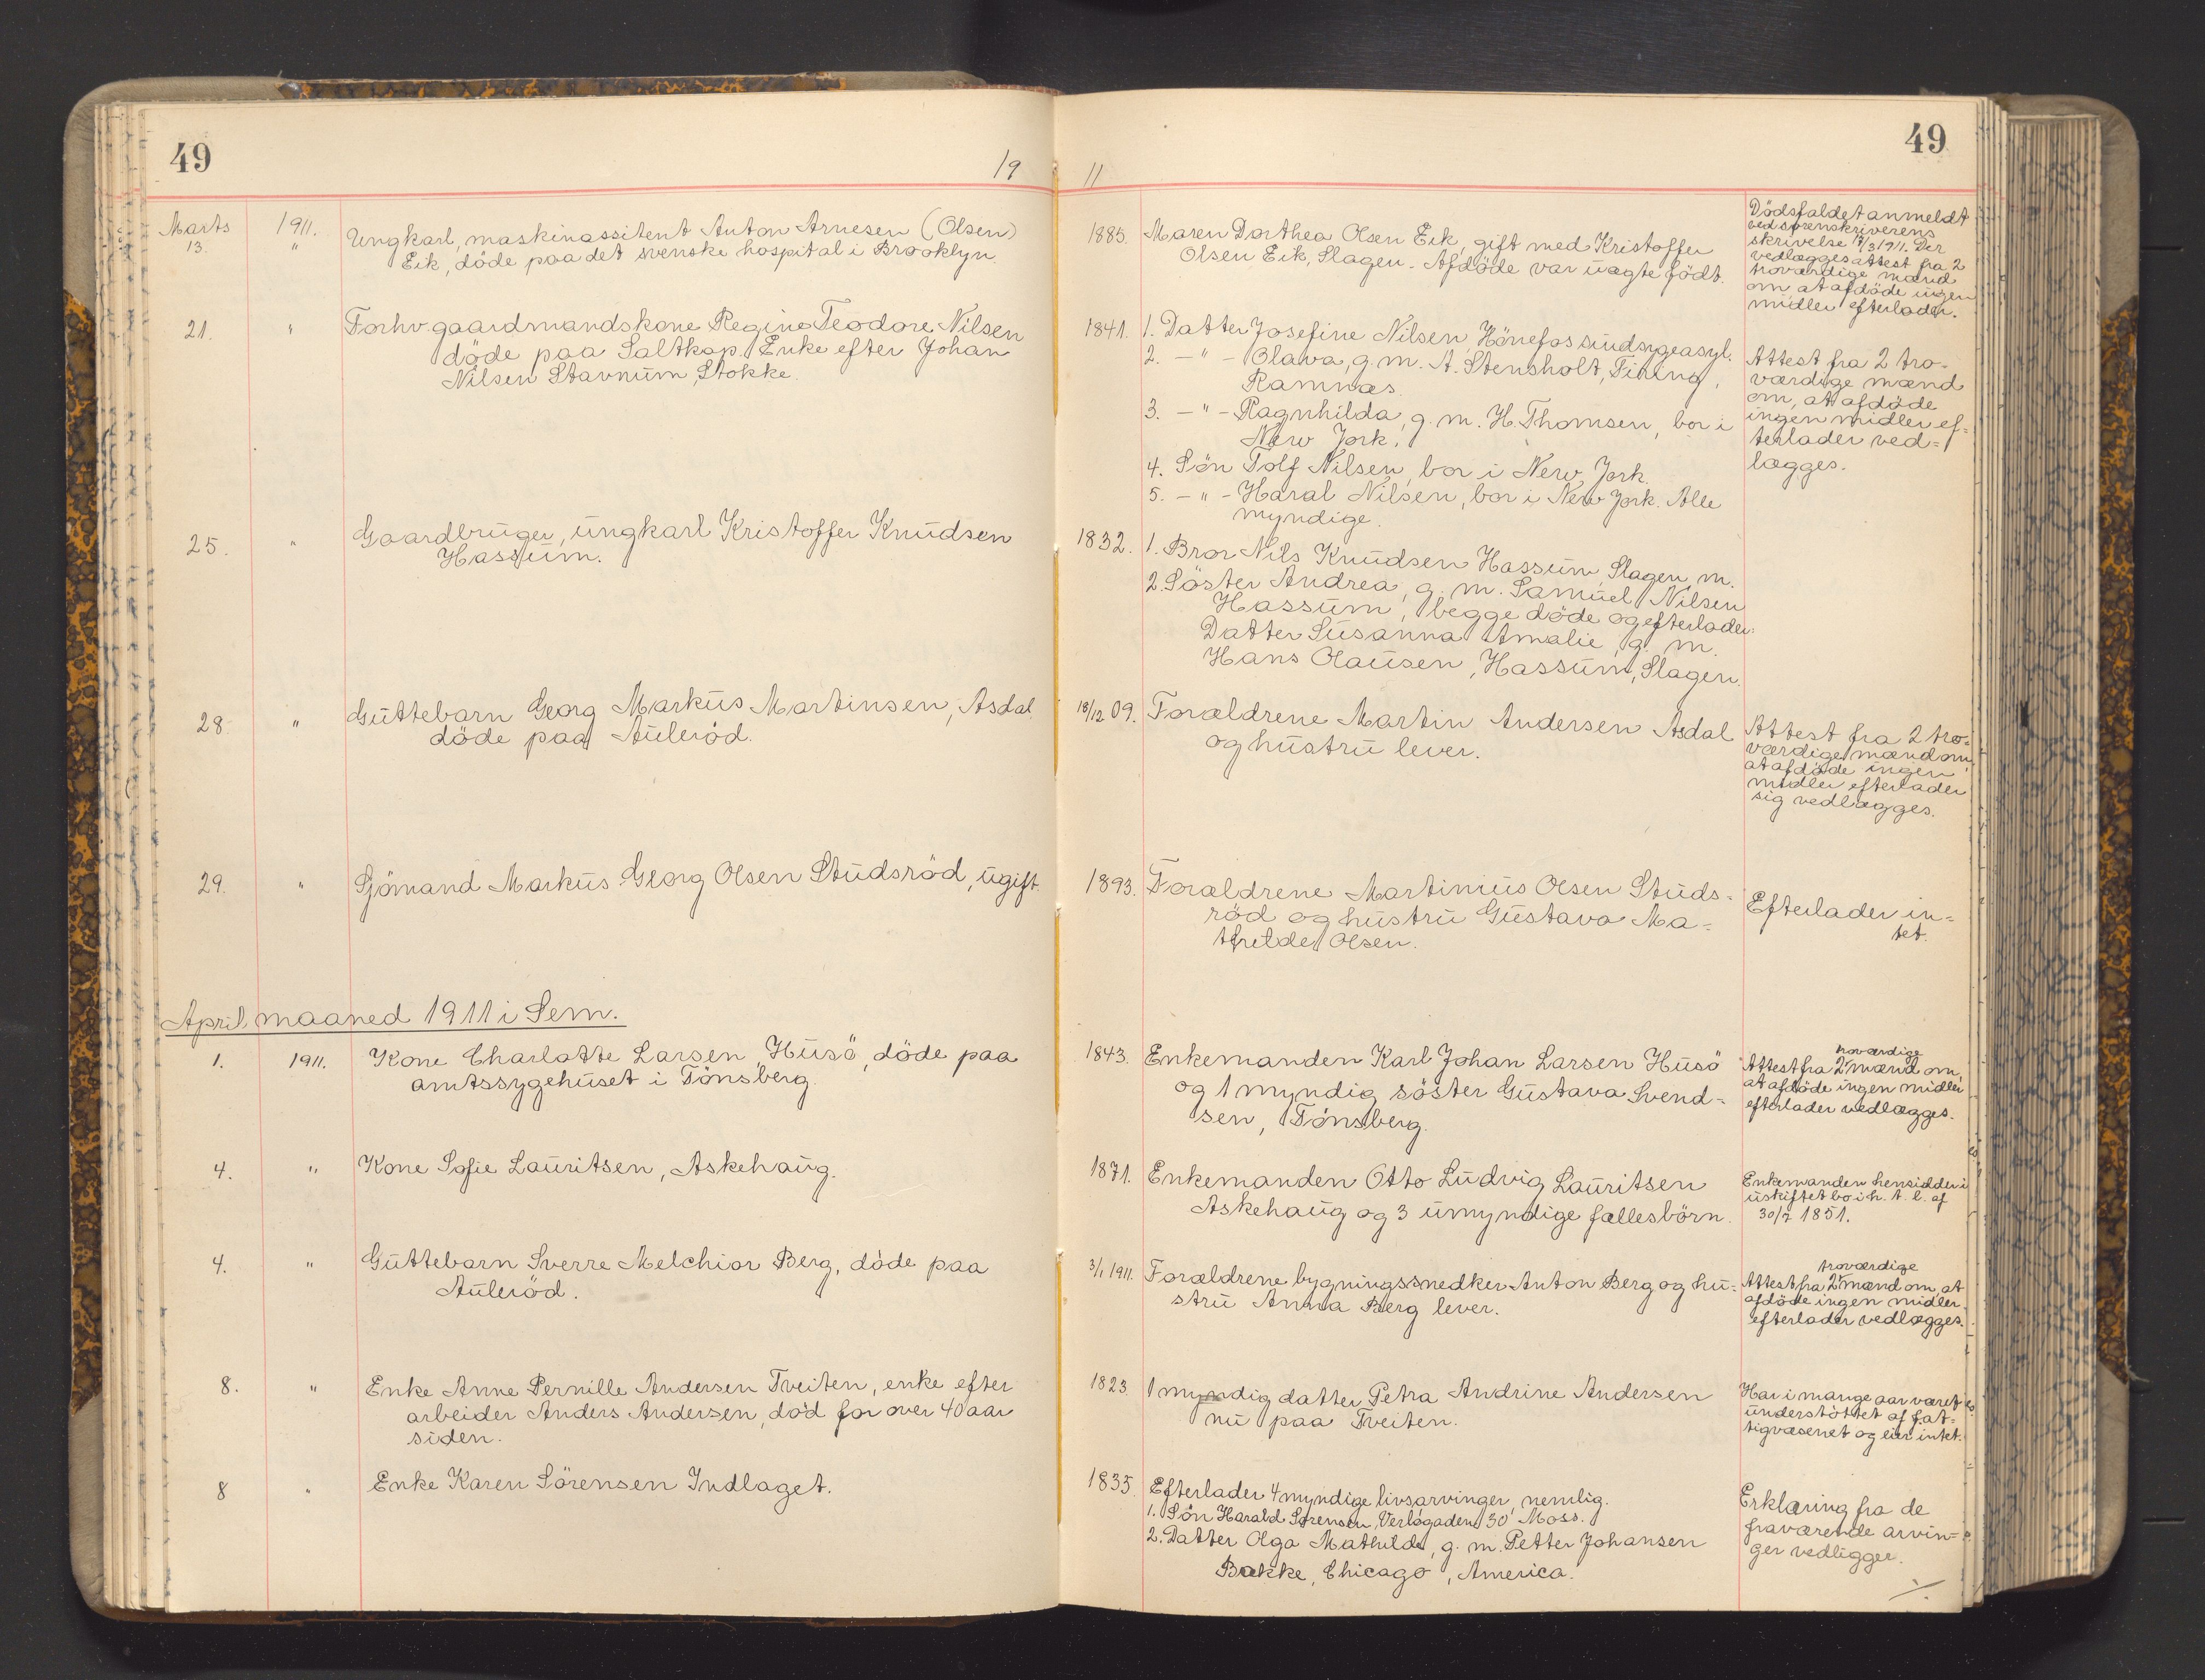 49
19 11
49
Marts 1911. Ungkarl, maskinassitent Anton Arnesen (Olsen)
13. " Eik, döde paa det svenske hospital i Brooklyn.
1885. Maren Dorthea Olsen Eik, gift med Kristoffer
Olsen Eik, Slagen. Afdöde var uægte födt.
Dödsfaldet anmeldt
ved sorenskriverens
skrivelse 17/3 1911. Der
vedlægges attest fra 2
troværdige mænd
om at afdöde ingen
midler efterlader.
21. " Forhv. gaardmandskone Regine Teodore Nilsen
döde paa Saltkop. Enke efter Johan
Nilsen Stavnum, Stokke.
1841. 1. Datter Josefine Nilsen, Hönefos sindsygeasyl.
2. - " - Olava, g. m. A. Stensholt, Firing,
Ramnæs.
3. - " - Ragnhilda, g. m. H. Thomsen, bor i
New Jork.
4. Sön Tolf Nilsen, bor i New Jork.
5. - " - Haral Nilsen, bor i New Jork. Alle
myndige.
Attest fra 2 tro-
værdige mænd
om, at afdöde
ingen midler ef-
terlader ved=
lægges.
25. " Gaardbruger, ungkarl Kristoffer Knudsen
Hassum.
1832. 1. Bror Nils Knudsen Hassum, Slagen, m.
2. Söster Andrea, g. m. Samuel Nilsen
Hassum, begge döde og efterlader:
Datter Susanna Amalie, g. m.
Hans Olausen, Hassum, Slagen.
28. " Guttebarn Georg Markus Martinsen, Asdal,
döde paa Auleröd.
18/12 09. Forældrene Martin Andersen Asdal
og hustru lever.
Attest fra 2 tro=
værdige mænd om,
at afdöde ingen
midler efterlader
sig vedlægges.
29. " Sjömand Markus Georg Olsen Studsröd, ugift.
1893. Forældrene Martinius Olsen Studs-
röd og hustru Gustava Ma-
thilde Olsen.
Efterlader in=
tet.
April maaned 1911 i Sem.
1. 1911. Kone Charlotte Larsen, Husö, döde paa
amtssygehuset i Tönsberg.
1843. Enkemanden Karl Johan Larsen Husö
og 1 myndig söster Gustava Svend=
sen, Tönsberg.
troværdige
Attest fra 2 mænd om,
at afdöde ingen midler
efterlader vedlægges.
4. " Kone Sofie Lauritsen, Askehaug.
1871. Enkemanden Otto Ludvig Lauritsen
Askehaug og 3 umyndige fællesbörn.
Enkemanden hensidder i
uskiftet bo i h. t. l. af
30/7 1851.
4. " Guttebarn Sverre Melchior Berg, döde paa
Auleröd.
3/1 1911. Forældrene bygningssnedker Anton Berg og hu-
stru Anna Berg lever.
troværdige
Attest fra 2 mænd om, at
afdöde ingen midler
efterlader vedlægges.
8. " Enke Anne Pernille Andersen Tveiten, enke efter
arbeider Anders Andersen, död for over 40 aar
siden.
1823. 1 myndig datter Petra Andrine Andersen
nu paa Tveiten.
Har i mange aar været
understöttet af fat=
tigvæsenet og eier intet.
8 " Enke Karen Sörensen Indlaget.
1835. Efterlader 4 myndige livsarvinger, nemlig.
1. Sön Harald Sörensen, Verlögaden 30 Moss.
2. Datter Olga Mathilde, g. m. Petter Johansen
Bakke, Chicago, America.
Erklæring fra de
fraværende arvin=
ger vedligger.